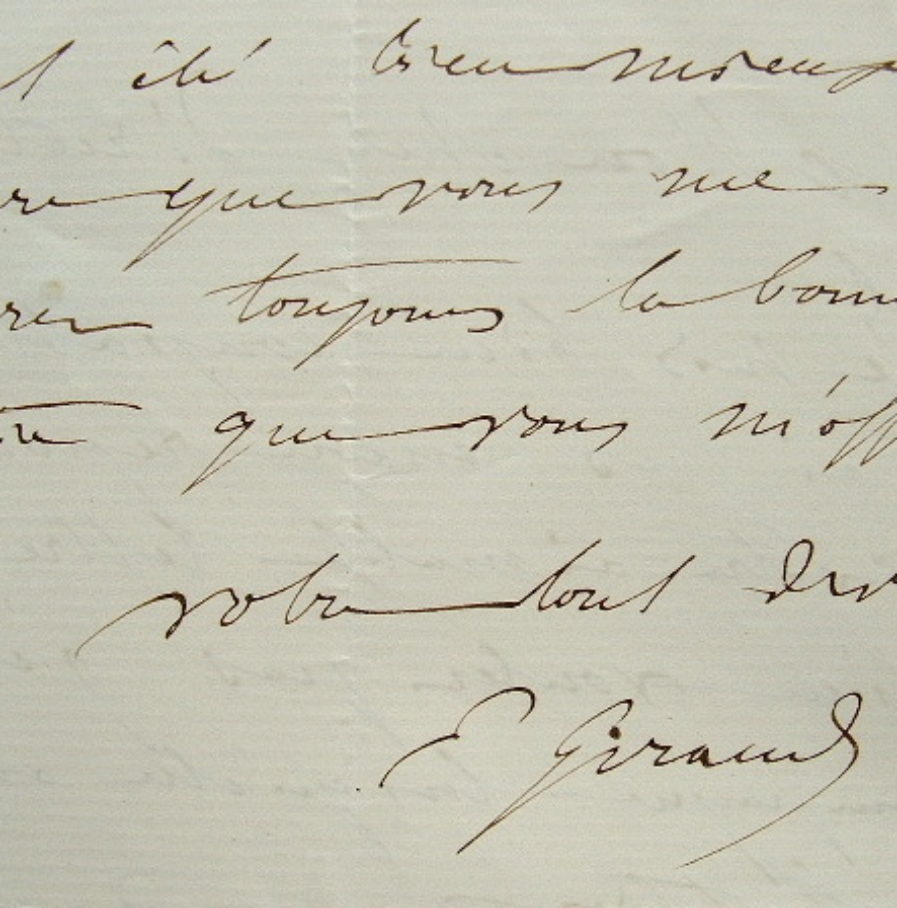 été bien mieux
que vous me
toujours la bonn
que vous m'off
votre tout dev
E Giraud